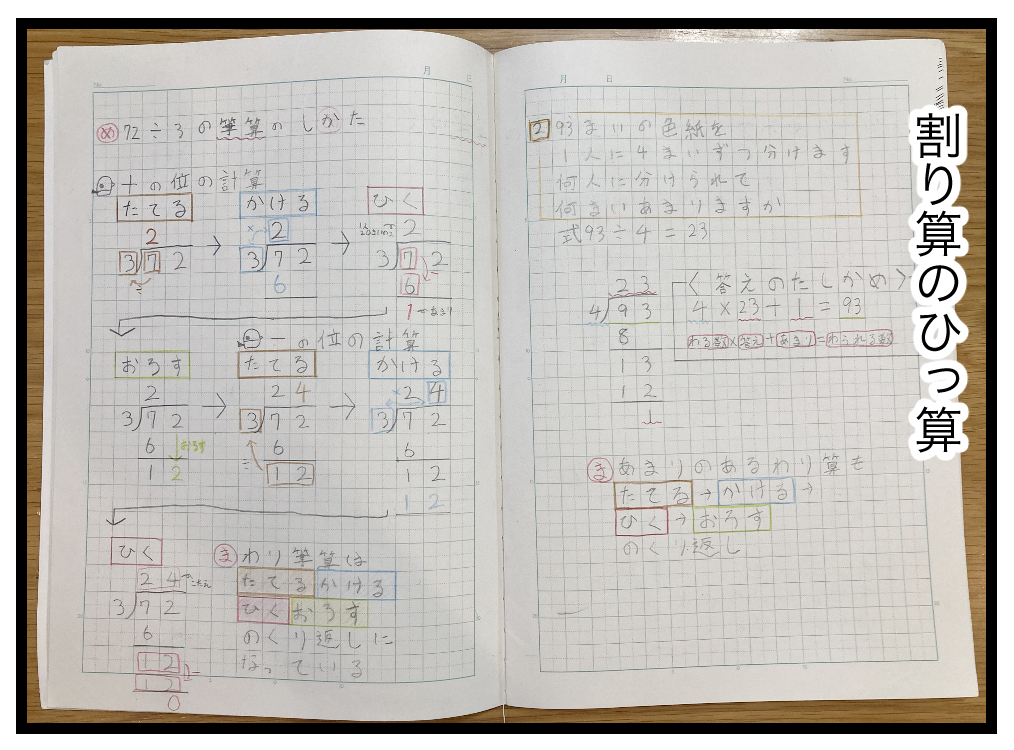 割り算のひっ算
月 日
め 72÷3の筆算のしかた
十の位の計算
たてる かける ひく
2
3)72
2
3)72
6
2
3)72
6
1
一の位の計算
おろす たてる かける
2
3)72
6
12
おろす
24
3)72
6
12
24
3)72
6
12
12
ひく
24
3)72
6
12
12
0
ま わり筆算は
たてる かける
ひく おろす
のくり返しに
なっている
月 日
2 93まいの色紙を
1人に4まいずつ分けます
何人に分けられて
何まいあまりますか
式93÷4=23
23
4)93
8
13
12
1
〈答えのたしかめ〉
4×23+1=93
わる数×答え+あまり=わられる数
ま あまりのあるわり算も
たてる→かける→
ひく→おろす
のくり返し